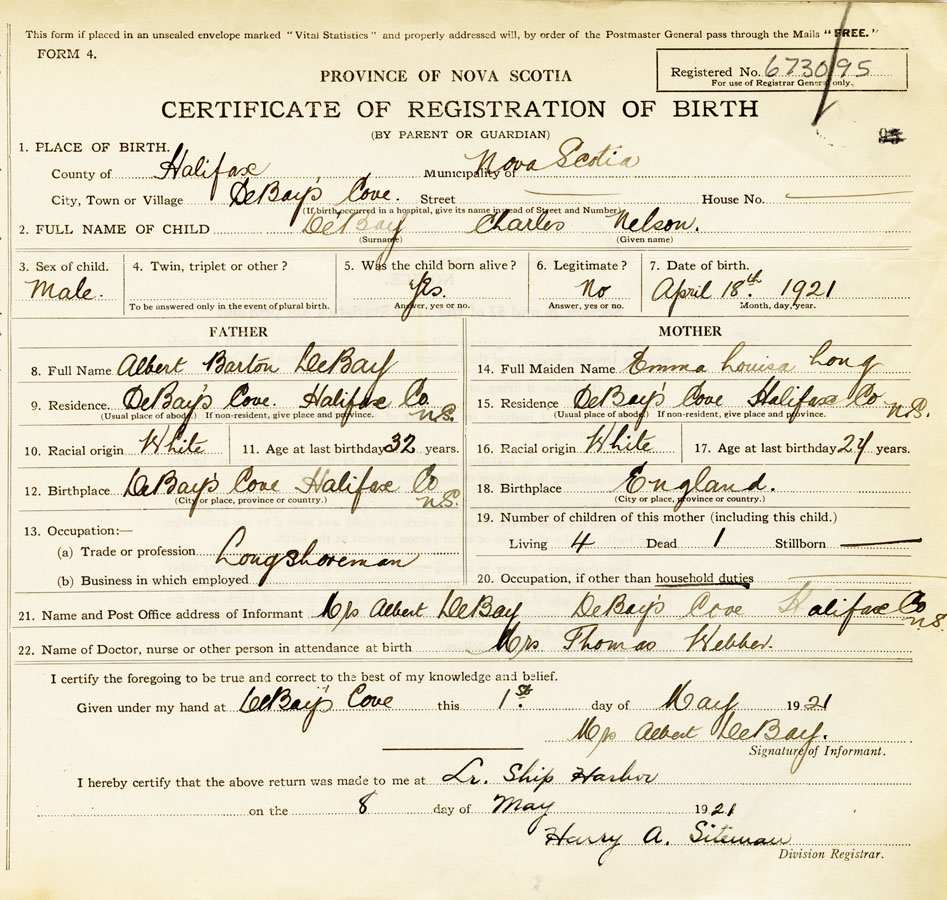 This form if placed in an unsealed envelope marked "Vital Statistics" and properly addressed will, by order of the Postmaster General pass through the Mails "FREE."
FORM 4.
Registered No. 673095
For use of Registrar General only.
PROVINCE OF NOVA SCOTIA
CERTIFICATE OF REGISTRATION OF BIRTH
(BY PARENT OR GUARDIAN)
1. PLACE OF BIRTH.
County of Halifax Municipality of Nova Scotia
City, Town or Village DeBay's Cove. Street House No.
(If birth occurred in a hospital, give its name instead of Street and Number)
2. FULL NAME OF CHILD DeBay Charles Nelson.
(Surname) (Given name)
3. Sex of child. 4. Twin, triplet or other? 5. Was the child born alive? 6. Legitimate? 7. Date of birth.
Male. Yes. No April 18th. 1921
To be answered only in the event of plural birth. Answer, yes or no. Answer, yes or no. Month, day, year.
FATHER
8. Full Name Albert Barton DeBay
9. Residence. DeBay's Cove. Halifax Co N.S.
(Usual place of abode) If non-resident, give place and province.
10. Racial origin White 11. Age at last birthday 32 years.
12. Birthplace DeBay's Cove Halifax Co N.S.
(City or place, province or country.)
13. Occupation:—
(a) Trade or profession Longshoreman
(b) Business in which employed
MOTHER
14. Full Maiden Name Emma Louisa Long
15. Residence DeBay's Cove Halifax Co N.S.
(Usual place of abode) If non-resident, give place and province.
16. Racial origin White 17. Age at last birthday 24 years.
18. Birthplace England.
(City or place, province or country.)
19. Number of children of this mother (including this child.)
Living 4 Dead 1 Stillborn —
20. Occupation, if other than household duties
21. Name and Post Office address of Informant Mrs Albert DeBay DeBay's Cove Halifax Co N.S.
22. Name of Doctor, nurse or other person in attendance at birth Mrs Thomas Webber.
I certify the foregoing to be true and correct to the best of my knowledge and belief.
Given under my hand at DeBay's Cove this 1st. day of May 1921
Mrs Albert DeBay.
Signature of Informant.
I hereby certify that the above return was made to me at Lr. Ship Harbor
on the 8 day of May 1921
Harry A. Siteman
Division Registrar.